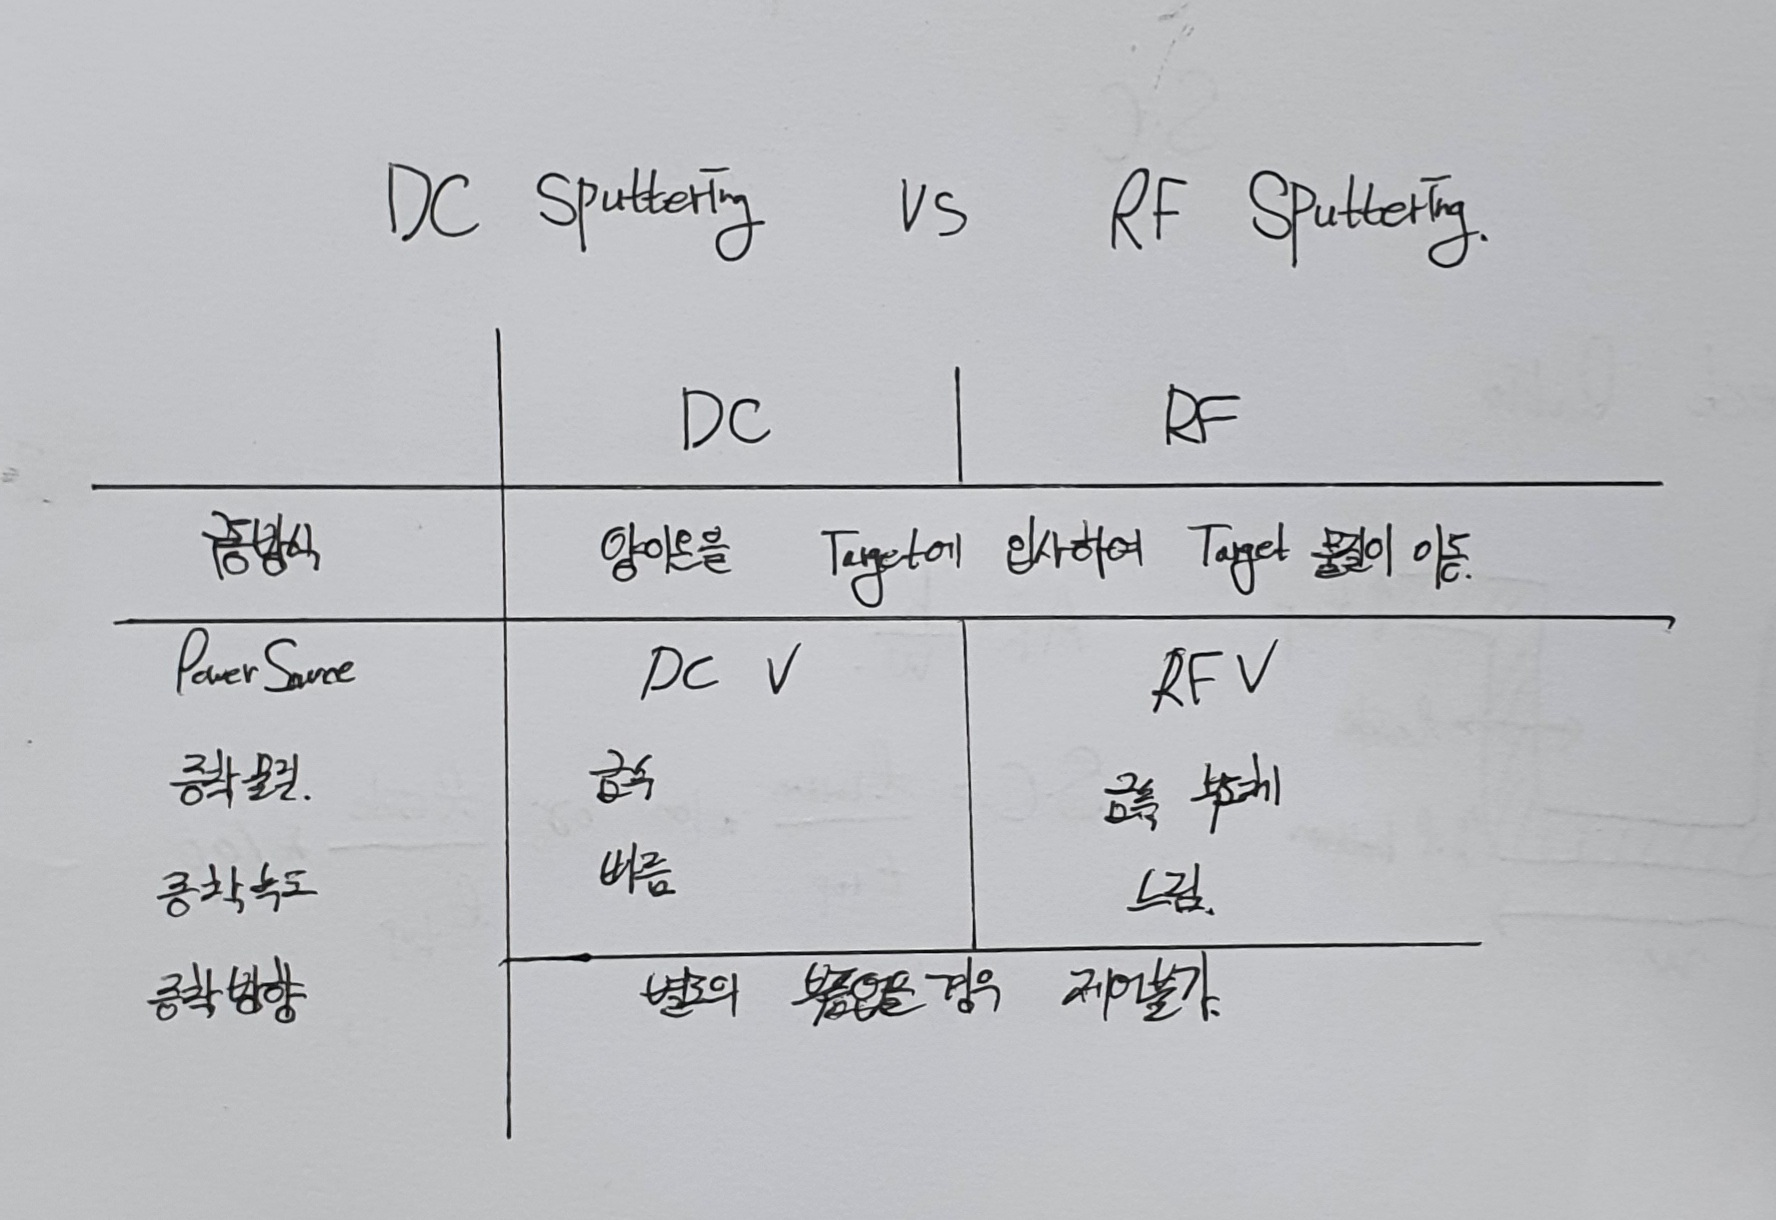 DC Sputtering vs RF Sputtering.
DC RF
양이온을 Target에 입사하여 Target 물질이 이동.
Power Source DC V RF V
증착 물질. 금속 금속 부도체
증착 속도 빠름 느림.
증착 방향 별도의 경우 제어불가.